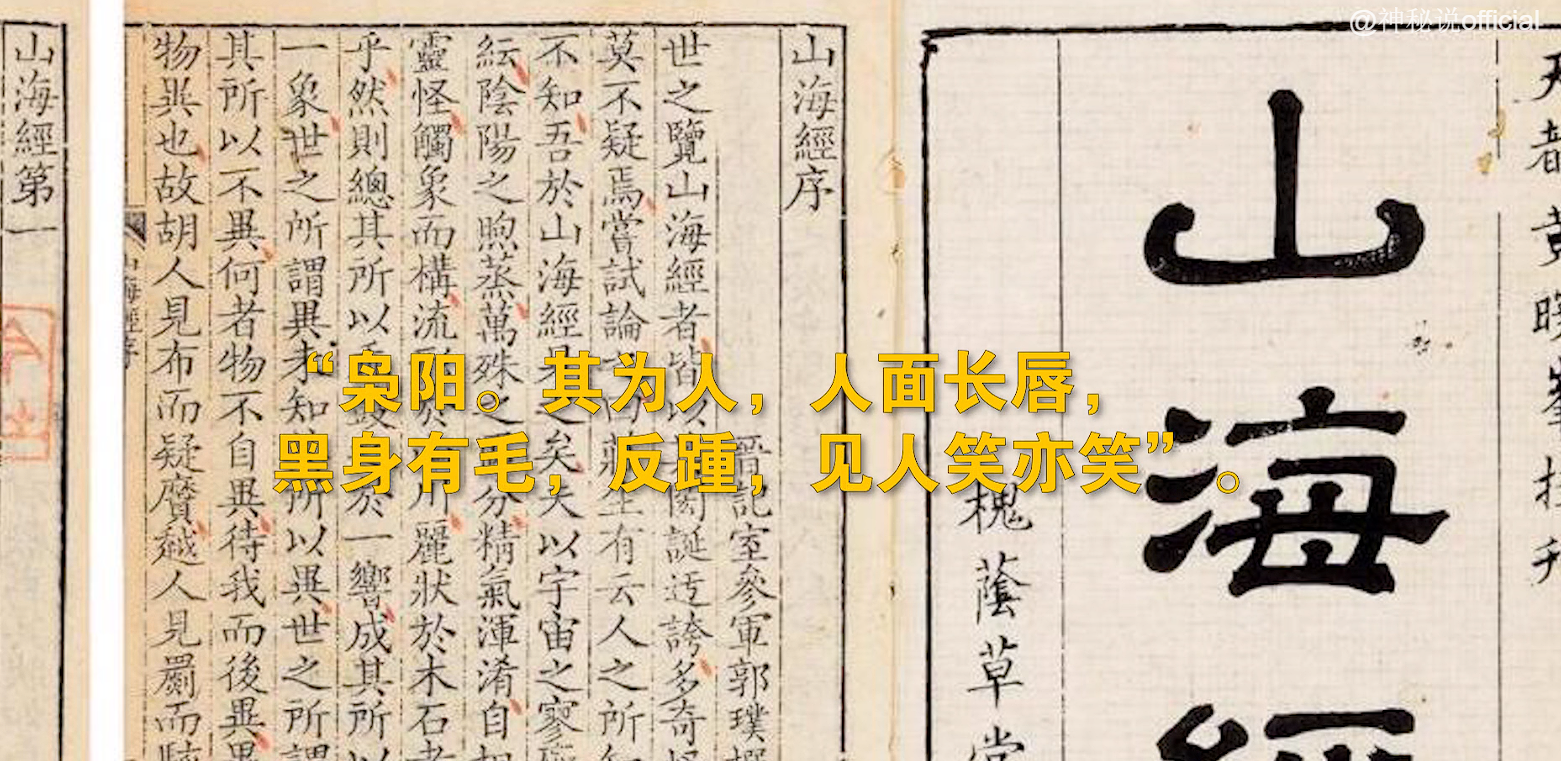 @神秘说official
天都黄曉峯挍刋
山海經
槐蔭草堂
山海經序
晉記室參軍郭璞撰
世之覽山海經者皆以閎誕迂誇多奇怪
莫不疑焉嘗試論莊生有云人之所知
不知吾於山海經見之矣夫以宇宙之寥
紜陰陽之煦蒸萬殊之分精氣渾淆自相
靈怪觸象而構流形川麗狀於木石者
乎然則總其所以於一響成其所以
一象世之所謂異未知所以異世之所謂
其所以不異何者物不自異待我而後異異
物異也故胡人見布而疑黂越人見罽而駭
山海經序
山海經第一
“枭阳。其为人，人面长唇，
黑身有毛，反踵，见人笑亦笑”。